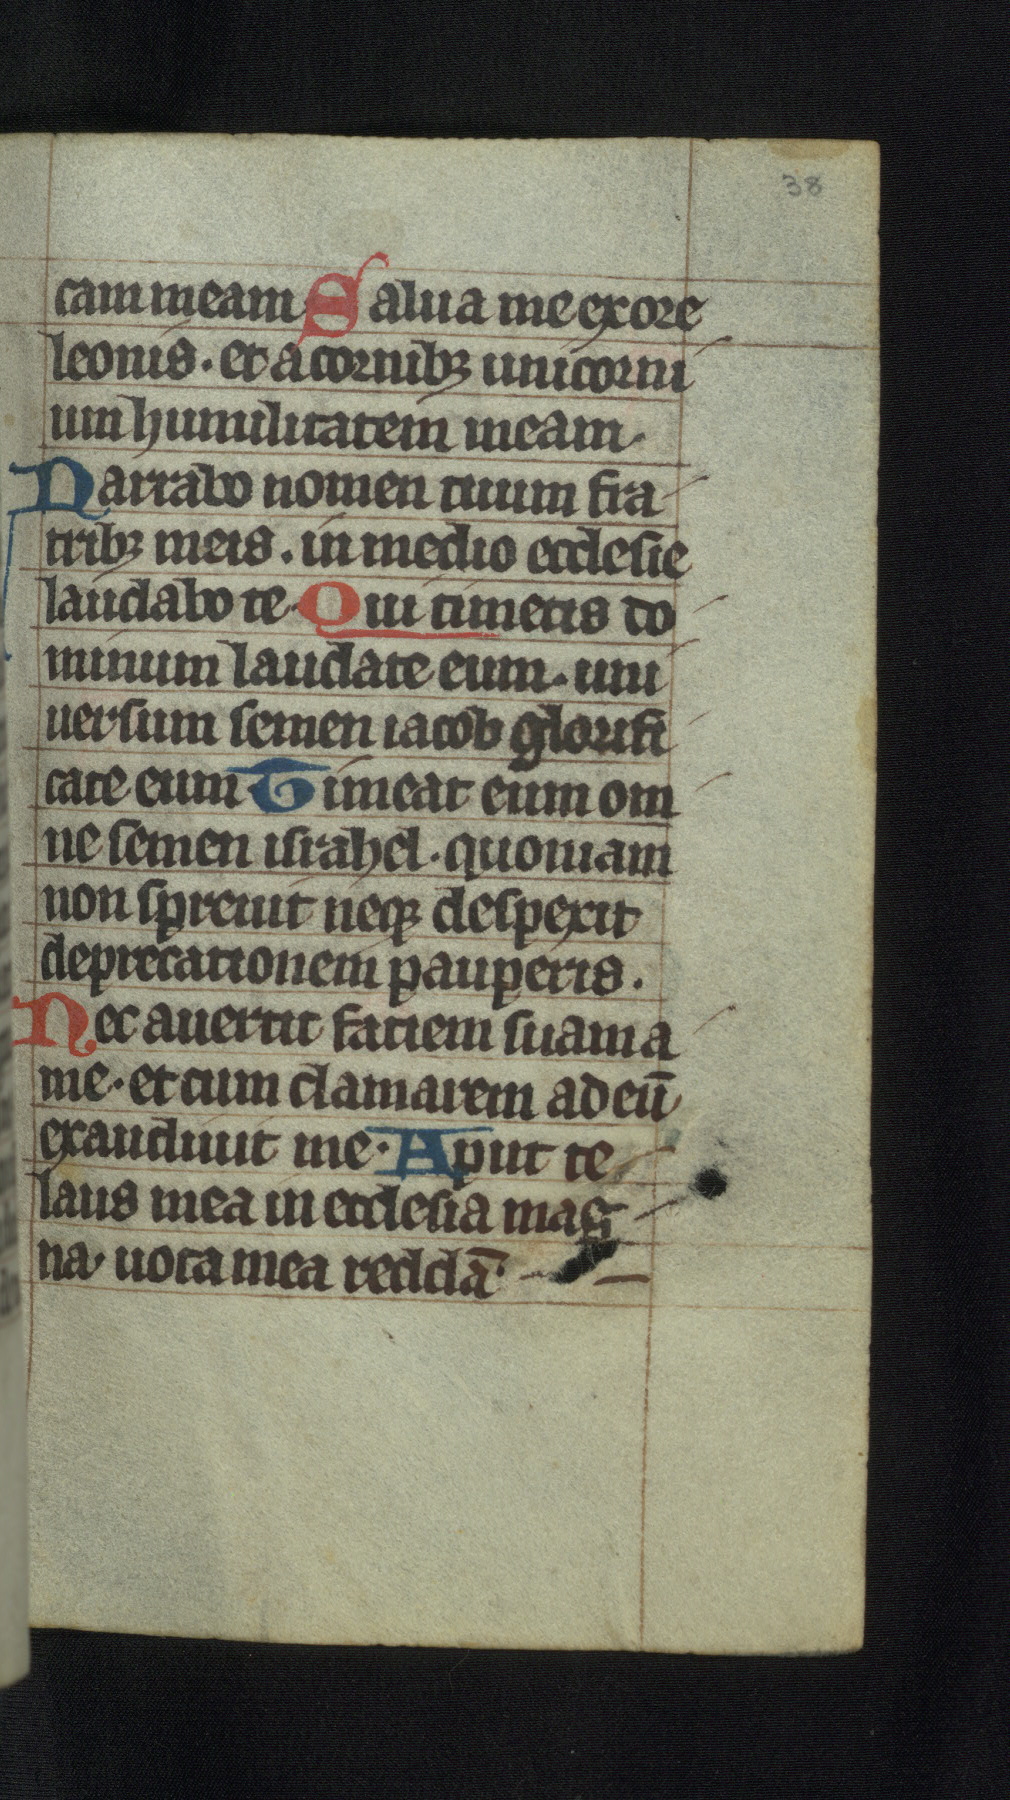 38
cam meam Salua me ex ore
leonis. et a cornibꝫ unicorni
um humilitatem meam.
Narrabo nomen tuum fra
tribꝫ meis. in medio ecclesie
laudabo te. Qui timetis do
minum laudate eum. uni
uersum semen iacob glorifi
cate eum Timeat eum om
ne semen israhel. quoniam
non spreuit neqꝫ despexit
deprecationem pauperis.
Nec auertit faciem suam a
me. et cum clamarem ad eū
exaudiuit me. Aput te
laus mea in ecclesia mag
na. uota mea reddā